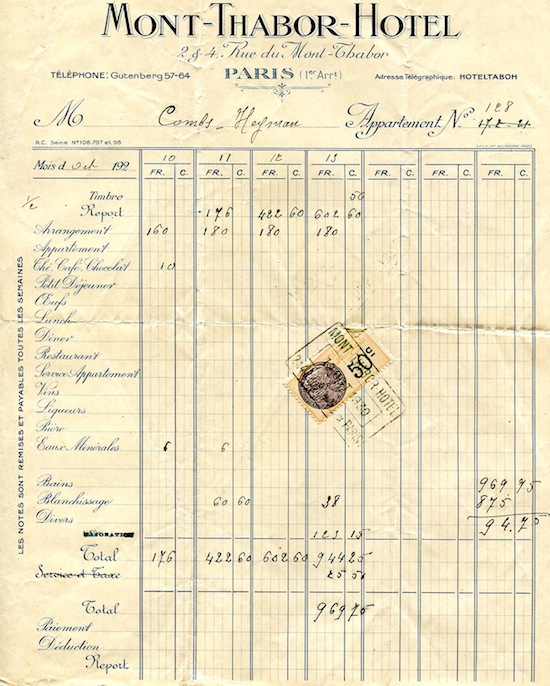 MONT-THABOR-HOTEL
2 & 4. Rue du Mont-Thabor
TÉLÉPHONE: Gutenberg 57-64 PARIS (1er Arrt) Adresse Télégraphique: HOTELTABOH
128
M Combs - Heyman Appartement No 172-21
R.C. Seine No 108.797 et 98
Mois d Oct 192 10 11 12 13
FR. C. FR. C. FR. C. FR. C. FR. C. FR. C. FR. C.
Timbre 50
1/2 Report 176 422 60 602 60
Arrangement 160 180 180 180
Appartement
Thé, Café, Chocolat 10
Petit Déjeuner
Œufs
Lunch
Dîner
Restaurant
Service Appartement
Vins
Liqueurs
Bière
Eaux Minérales 6 6
Bains 969.75
Blanchissage 60 60 38 875
Divers 94.75
123 15
Total 176 422 60 602 60 944 25
Service et Taxe 25 50
Total 969 75
Paiement
Déduction
Report
LES NOTES SONT REMISES ET PAYABLES TOUTES LES SEMAINES
MONT THABOR HOTEL
50 Ct
PARIS